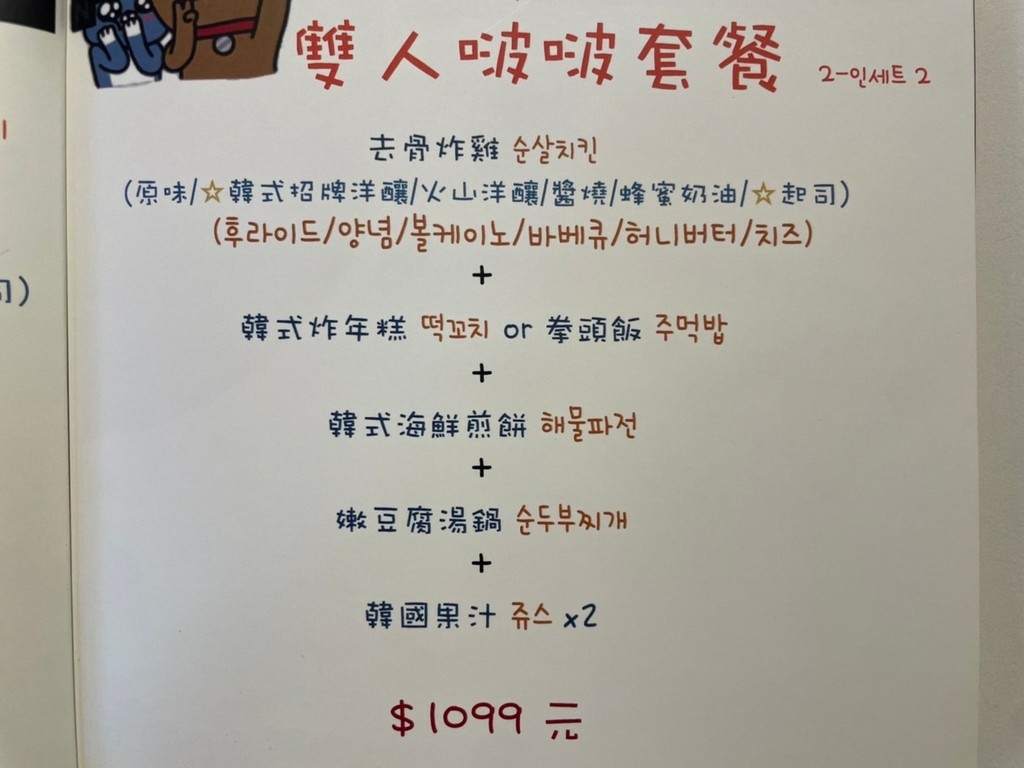 雙人啵啵套餐 2-인세트 2
去骨炸雞 순살치킨
(原味/☆韓式招牌洋釀/火山洋釀/醬燒/蜂蜜奶油/☆起司)
(후라이드/양념/볼케이노/바베큐/허니버터/치즈)
+
韓式炸年糕 떡꼬치 or 拳頭飯 주먹밥
+
韓式海鮮煎餅 해물파전
+
嫩豆腐湯鍋 순두부찌개
+
韓國果汁 쥬스 x2
$1099 元